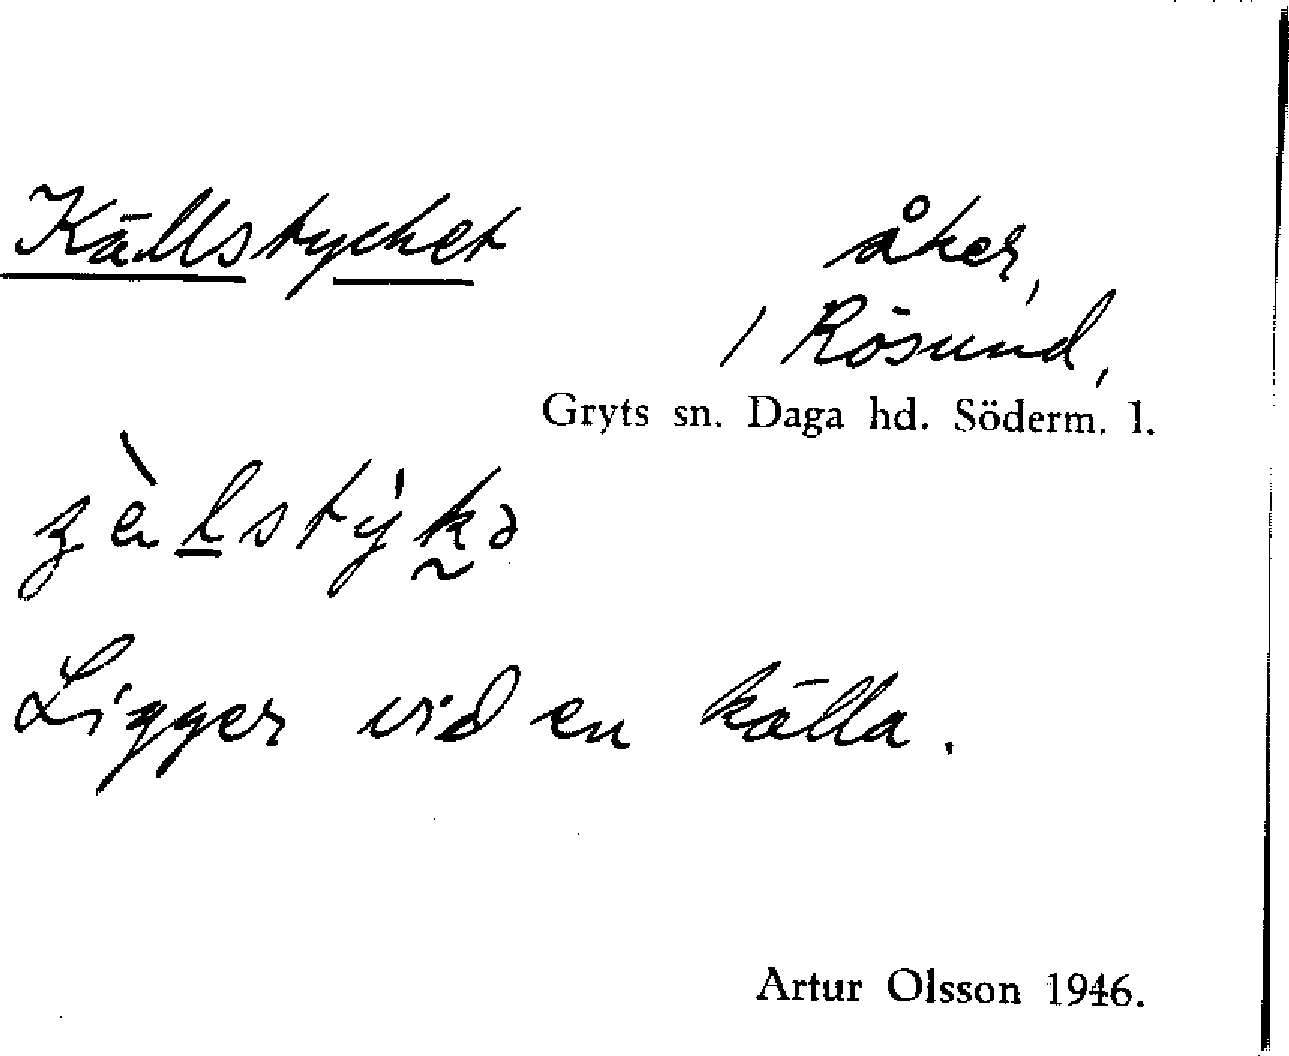 Källstycket åker,
/ Rösund,
Gryts sn. Daga hd. Söderm. l.
Ligger vid en källa.
Artur Olsson 1946.